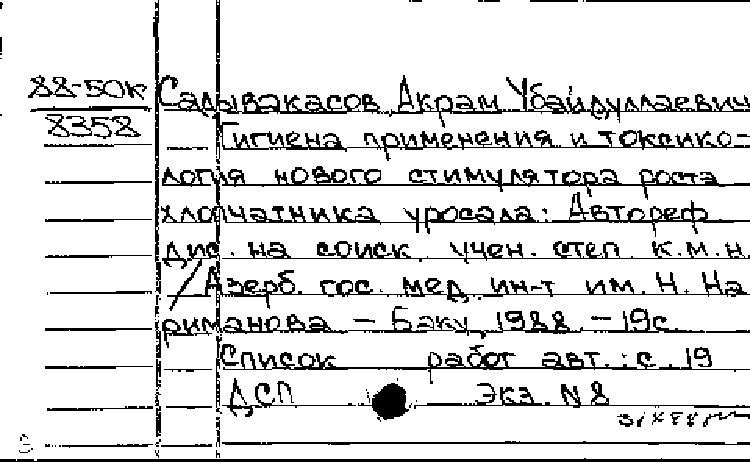 88-50к Садывакасов Акрам Убайдуллаевич
8358 Гигиена применения и токсико-
логия нового стимулятора роста
хлопчатника уросала: Автореф.
дис. на соиск. учен. степ. к.м.н.
/Азерб. гос. мед. ин-т им. Н. На
риманова – Баку, 1988. – 19с.
Список работ авт.: с. 19
ДСП Экз. N 8